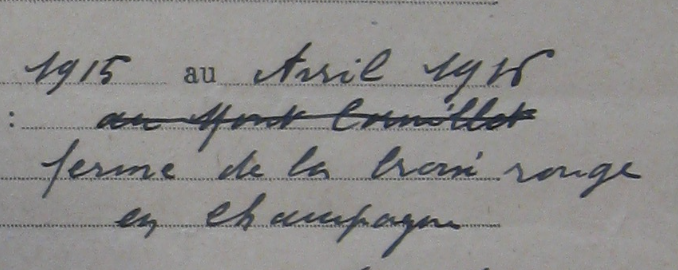 1915 au Avril 1916
: au Mont Cornillet
ferme de la Croix rouge
en Champagne